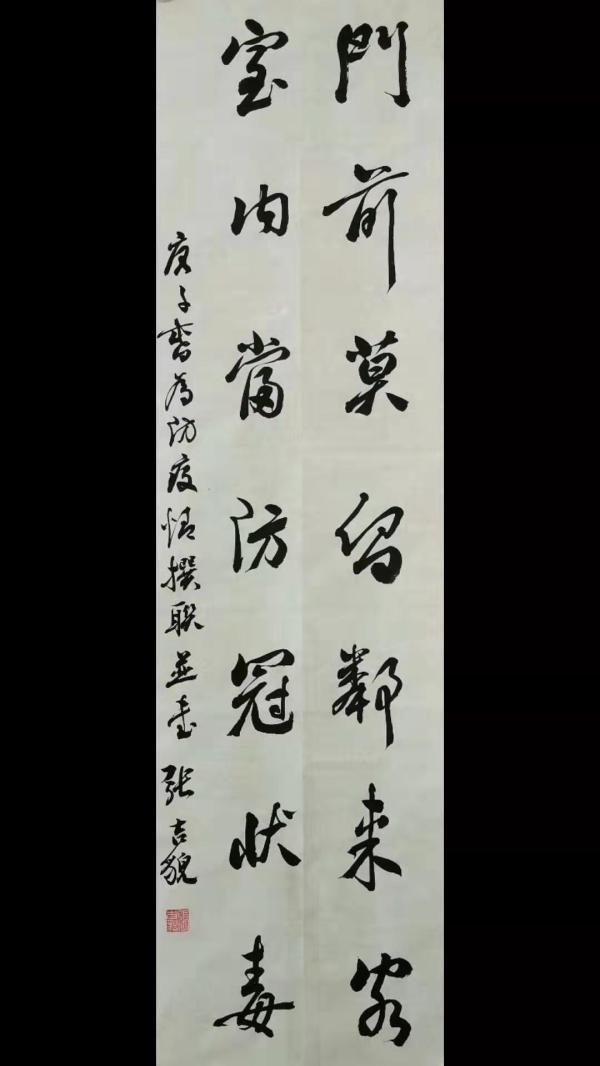 門前莫留鄰来客
室内當防冠状毒
庚子春為防疫情撰聯並書 張吉貌